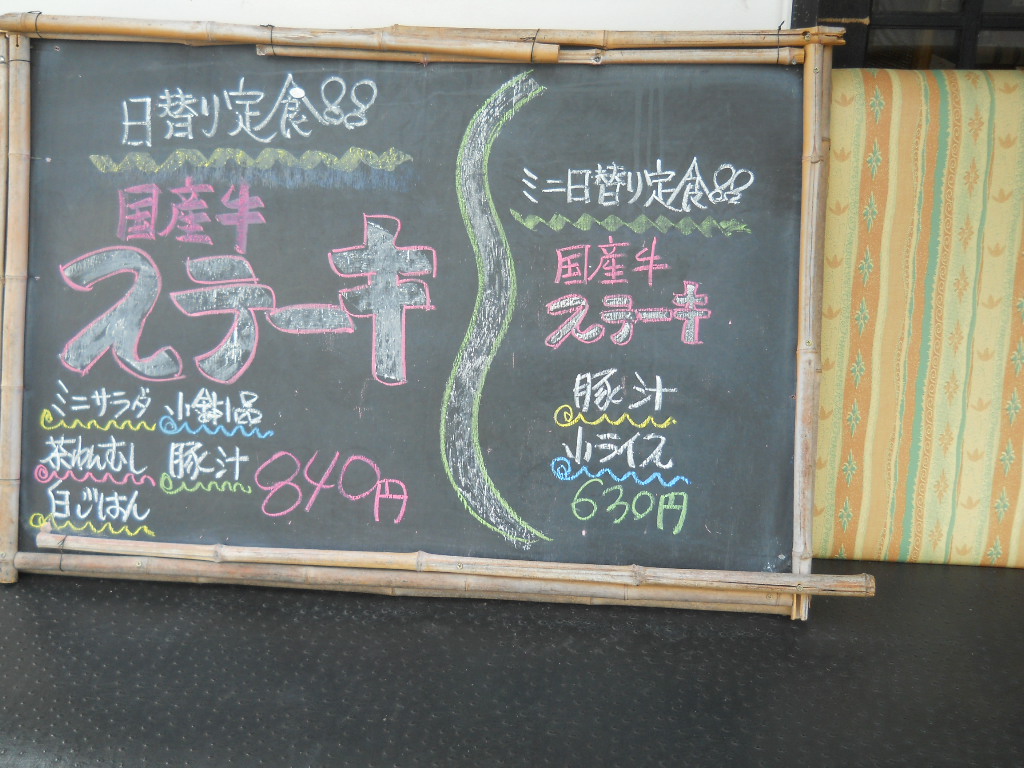 日替り定食
国産牛
ステーキ
ミニサラダ 小鉢1品
茶わんむし 豚汁
白ごはん
840円
ミニ日替り定食
国産牛
ステーキ
豚汁
小ライス
630円